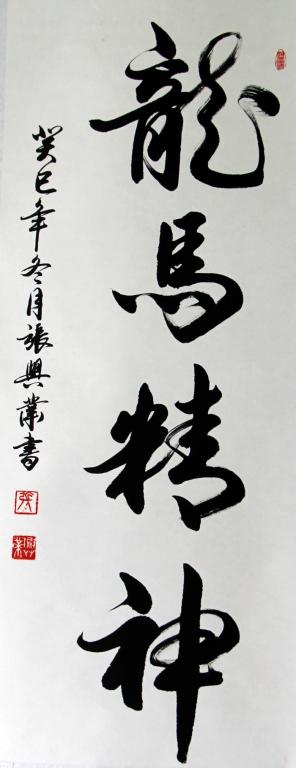 龍馬精神
癸巳年冬月張興業書
張